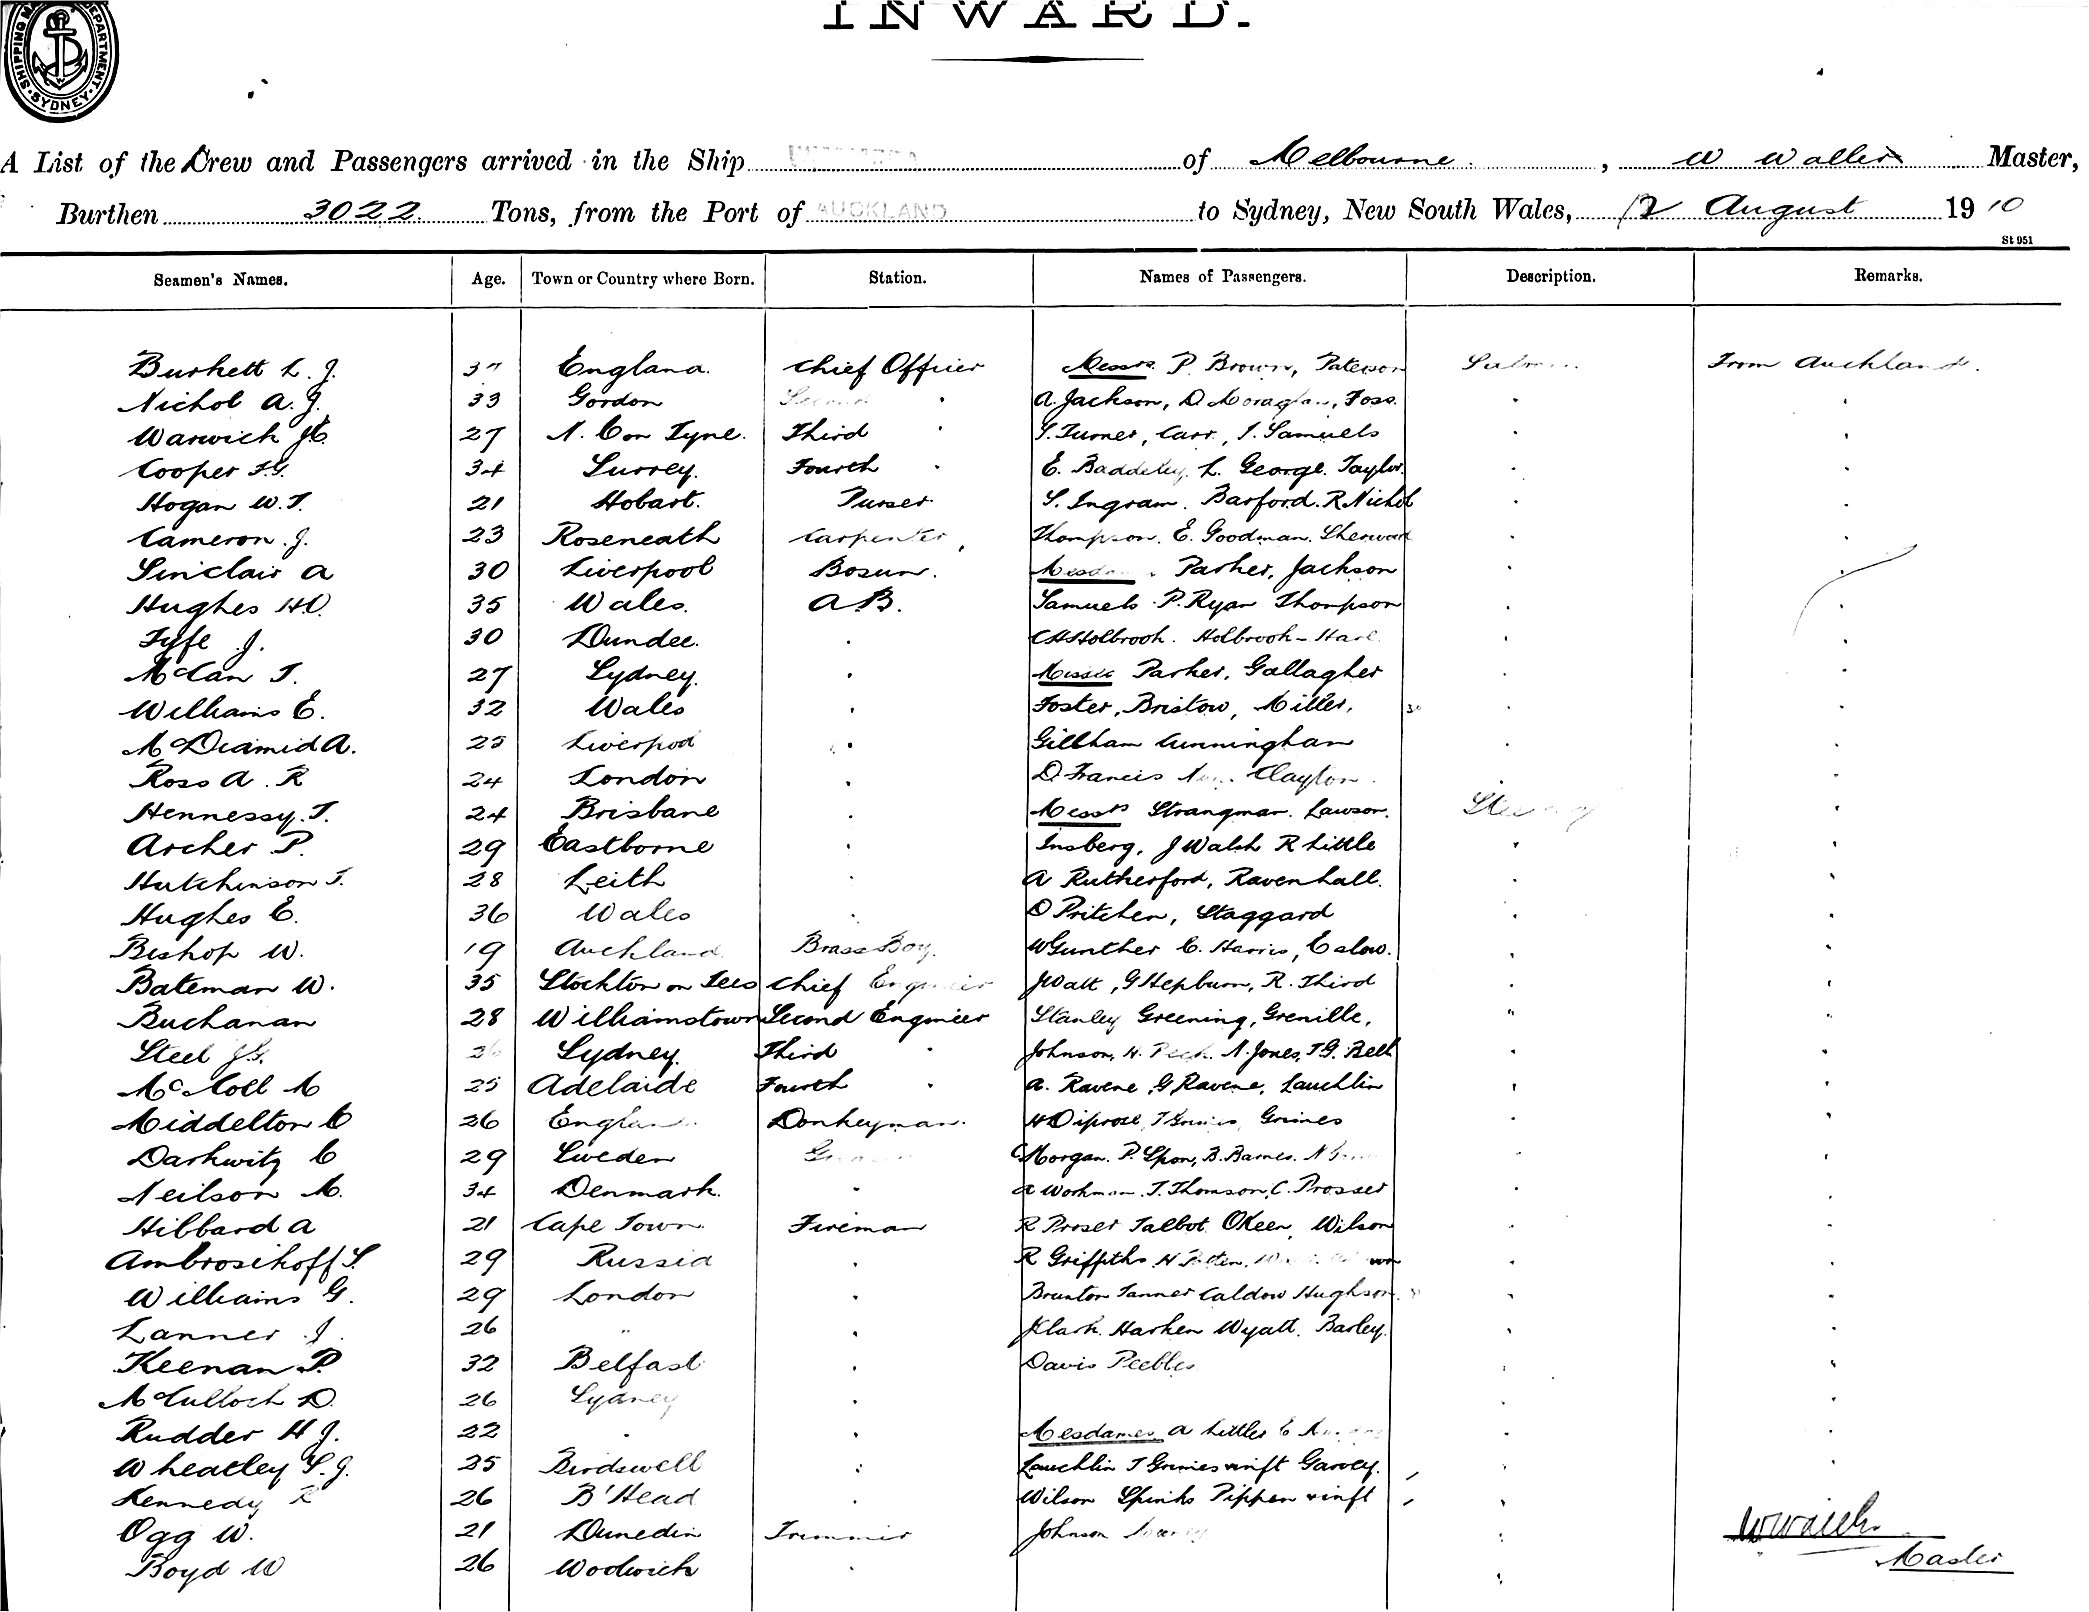 INWARD.
SHIPPING DEPARTMENT SYDNEY
A List of the Crew and Passengers arrived in the Ship of Melbourne, W Waller Master,
Burthen 3022 Tons, from the Port of AUCKLAND to Sydney, New South Wales, 12 August 1910
St 951
Seamen's Names. Age. Town or Country where Born. Station. Names of Passengers. Description. Remarks.
Burkett L. J. 37 England. Chief Officer Messrs. P. Brown, Paterson Saloon From Auckland.
Nichol A. J. 33 Gordon Second " A. Jackson, Foss.
Warwick 27 N. C on Tyne. Third " S. Turner, Carr, I. Samuels
Cooper F.G. 34 Surrey. Fourth " E. Baddeley. L. George. Taylor.
Hogan W. T. 21 Hobart. Purser S. Ingram. Barford. R Nichol
Cameron. J. 23 Roseneath Carpenter, Thompson. E. Goodman.
Sinclair A 30 Liverpool Bosun. Mesdames Parker, Jackson
Hughes 35 Wales. A.B. Samuels P. Ryan Thompson
Fyfe J. 30 Dundee. " Holbrook. Holbrook-
McCan T. 27 Sydney. " Misses Parker, Gallagher
Williams E. 32 Wales " Foster, Bristow, Miller,
McDiamid A. 25 Liverpool " Gillham Cunningham
Ross A. R 24 London " D Francis Clayton.
Hennessy. T. 24 Brisbane " Messrs Strangmar. Lawson. Steerage
Archer P. 29 Eastborne " Insberg, J Walsh R Little
Hutchinson T. 28 Leith " A Rutherford, Ravenhall.
Hughes E. 36 Wales " D Pritchen, Staggard
Bishop W. 19 Auckland Brass Boy. W Gunther C. Harris,
Bateman W. 35 Stockton on Tees Chief Engineer J Watt, G Hepburn, R. Third
Buchanan 28 Williamstown Second Engineer Stanley Greening, Grenille,
Steel 26 Sydney. Third " Johnson, H. Peck. N. Jones, T.G. Bell
McColl M 25 Adelaide Fourth " A. Ravene, G Ravene, Lauchlin
Middelton C 26 England. Donkeyman. H Diprose, Grimes
Darkwitz C 29 Sweden Morgan. P. Spon, B. Barnes.
Neilson M. 34 Denmark. " A Workman. T. Thomson, C. Prosser
Hibbard A 21 Cape Town. Fireman R Proser Talbot OKeen, Wilson
Ambrosikoff S. 29 Russia " R Griffiths
Williams G. 29 London " Brunton Tanner Caldow Hughson.
Lanner J. 26 " " Harken Wyatt. Barley.
Keenan P. 32 Belfast " Davis Peebles
McCulloch D. 26 Sydney "
Rudder H J. 22 " " Mesdames A Littler
Wheatley S. J. 25 Birdswell " Lauchlin T Grimes & inft Garvey.
Kennedy R 26 B'Head " Wilson Spinks Pippen & inft
Ogg W. 21 Dunedin Trimmer Johnson
Boyd W 26 Woolwich "
W Waller
Master